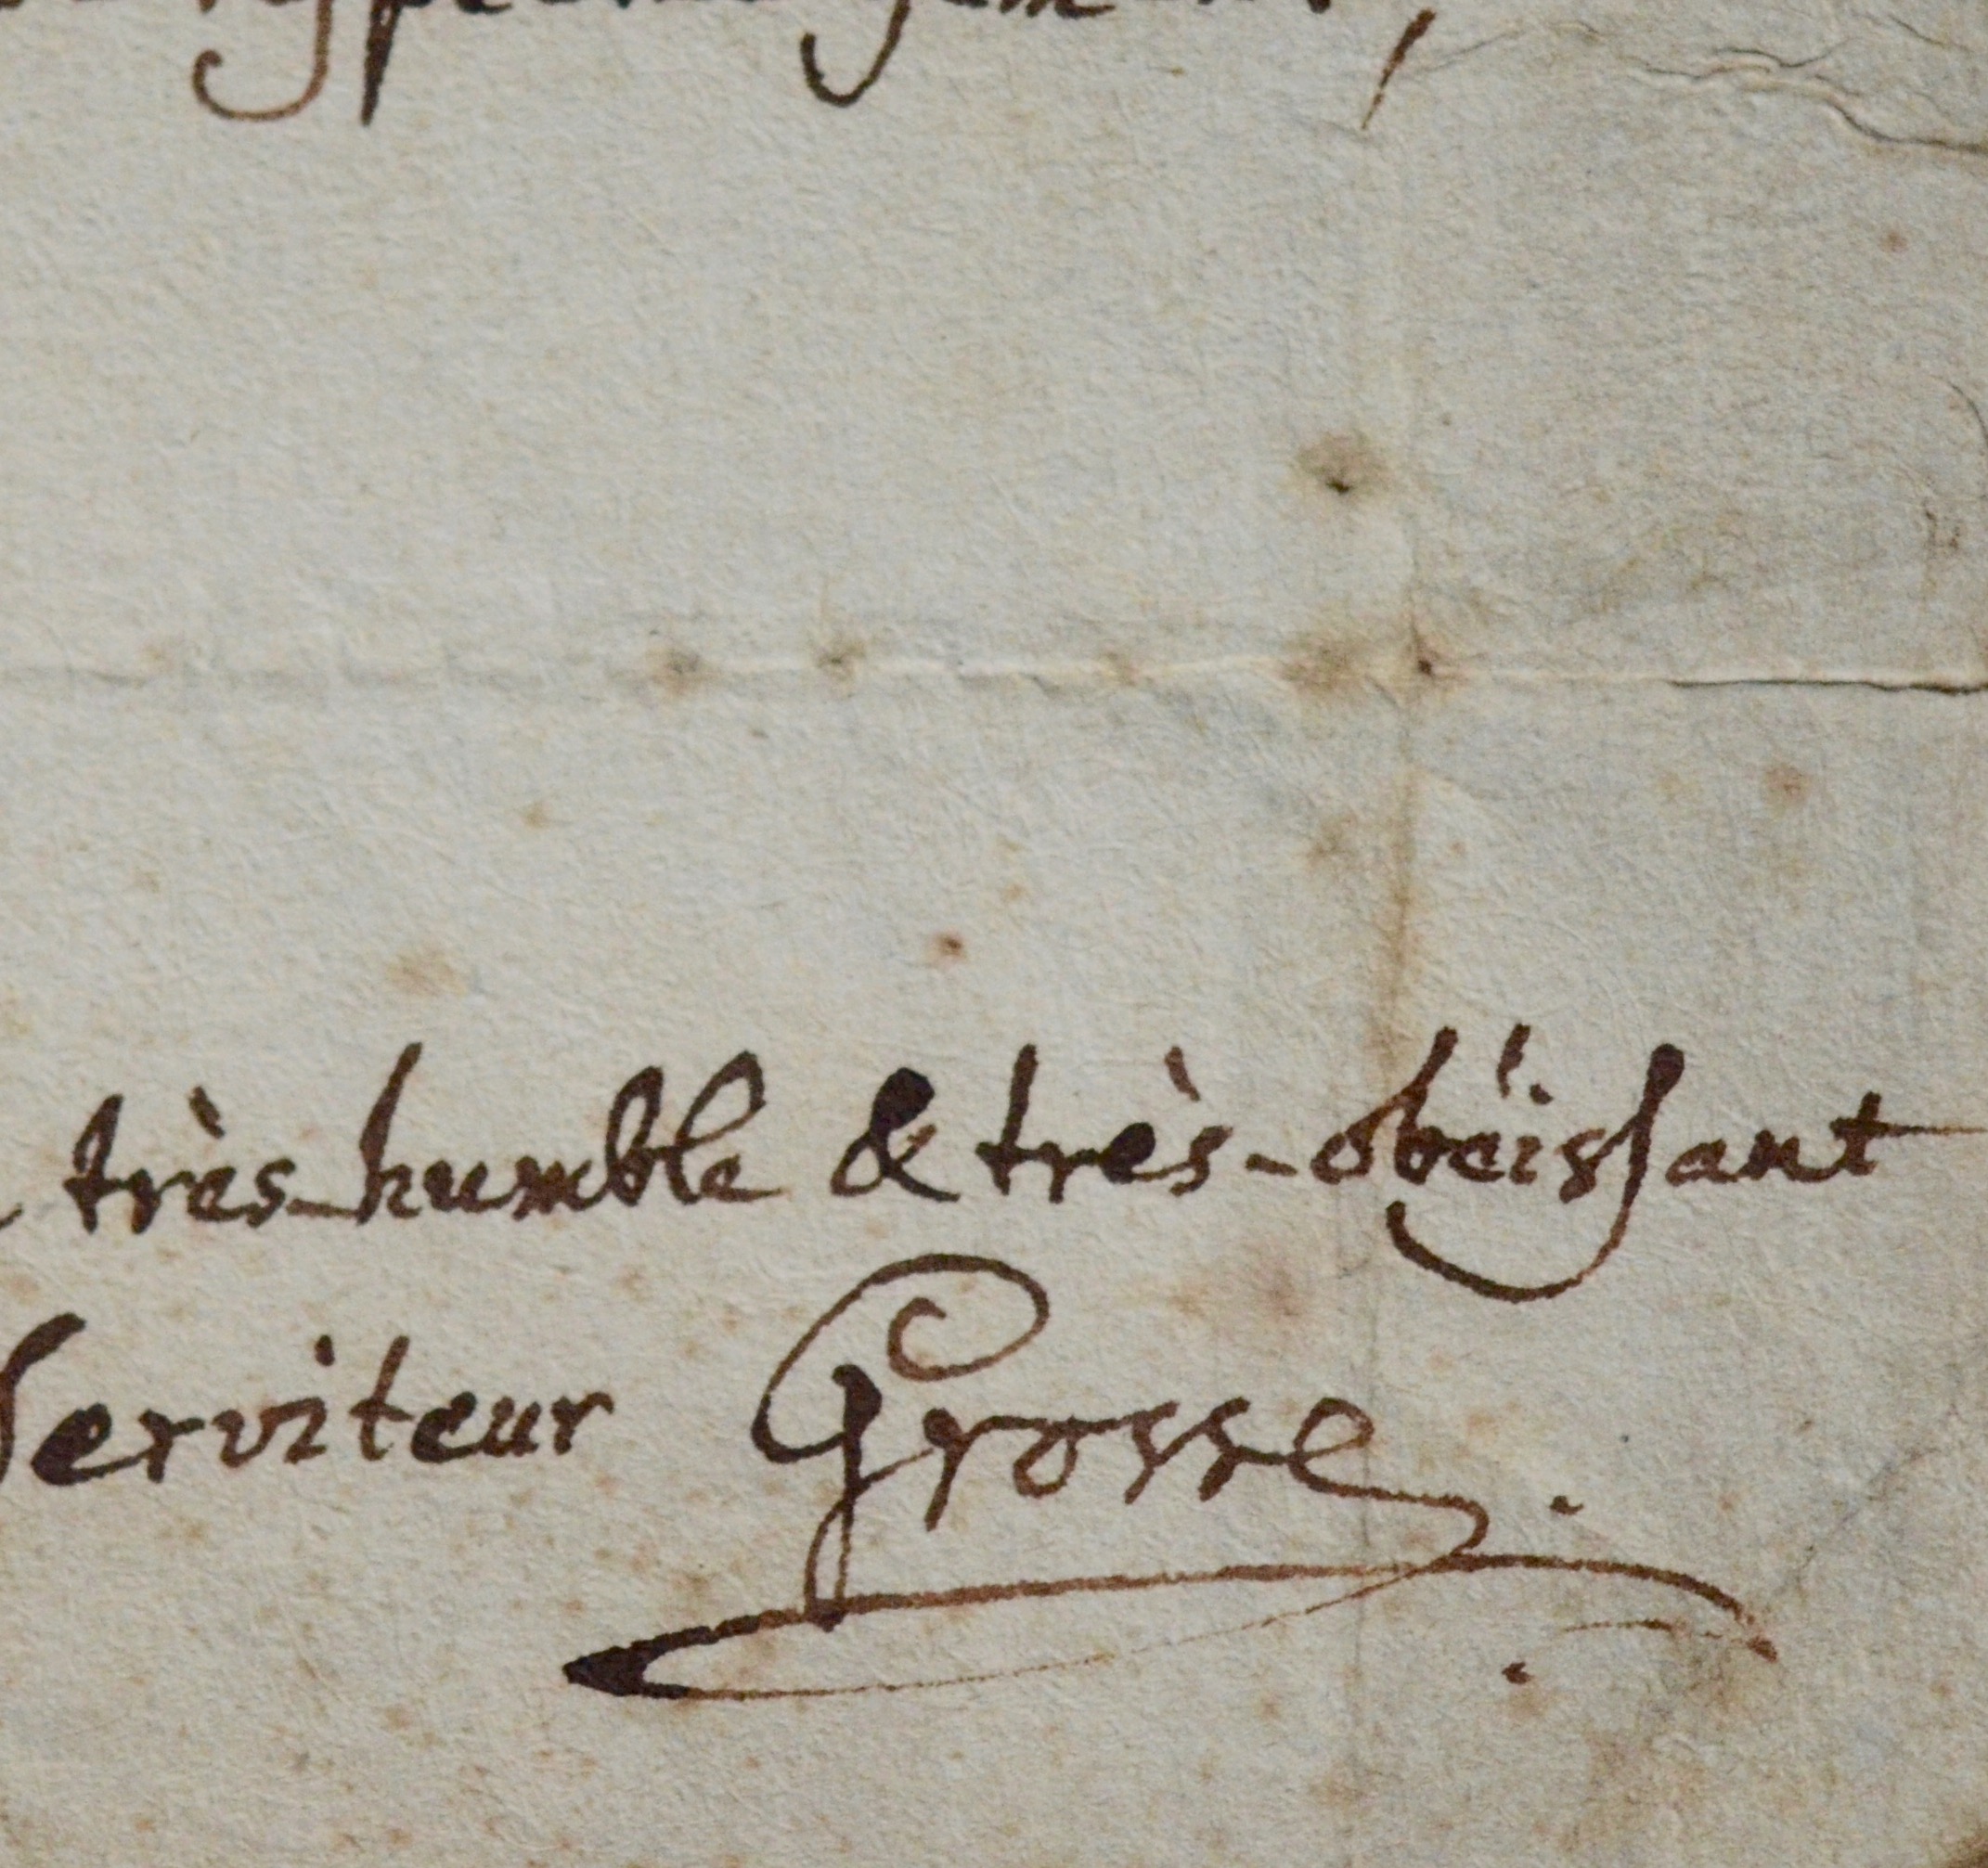 très-humble & très-obéissant
Serviteur Grosse.